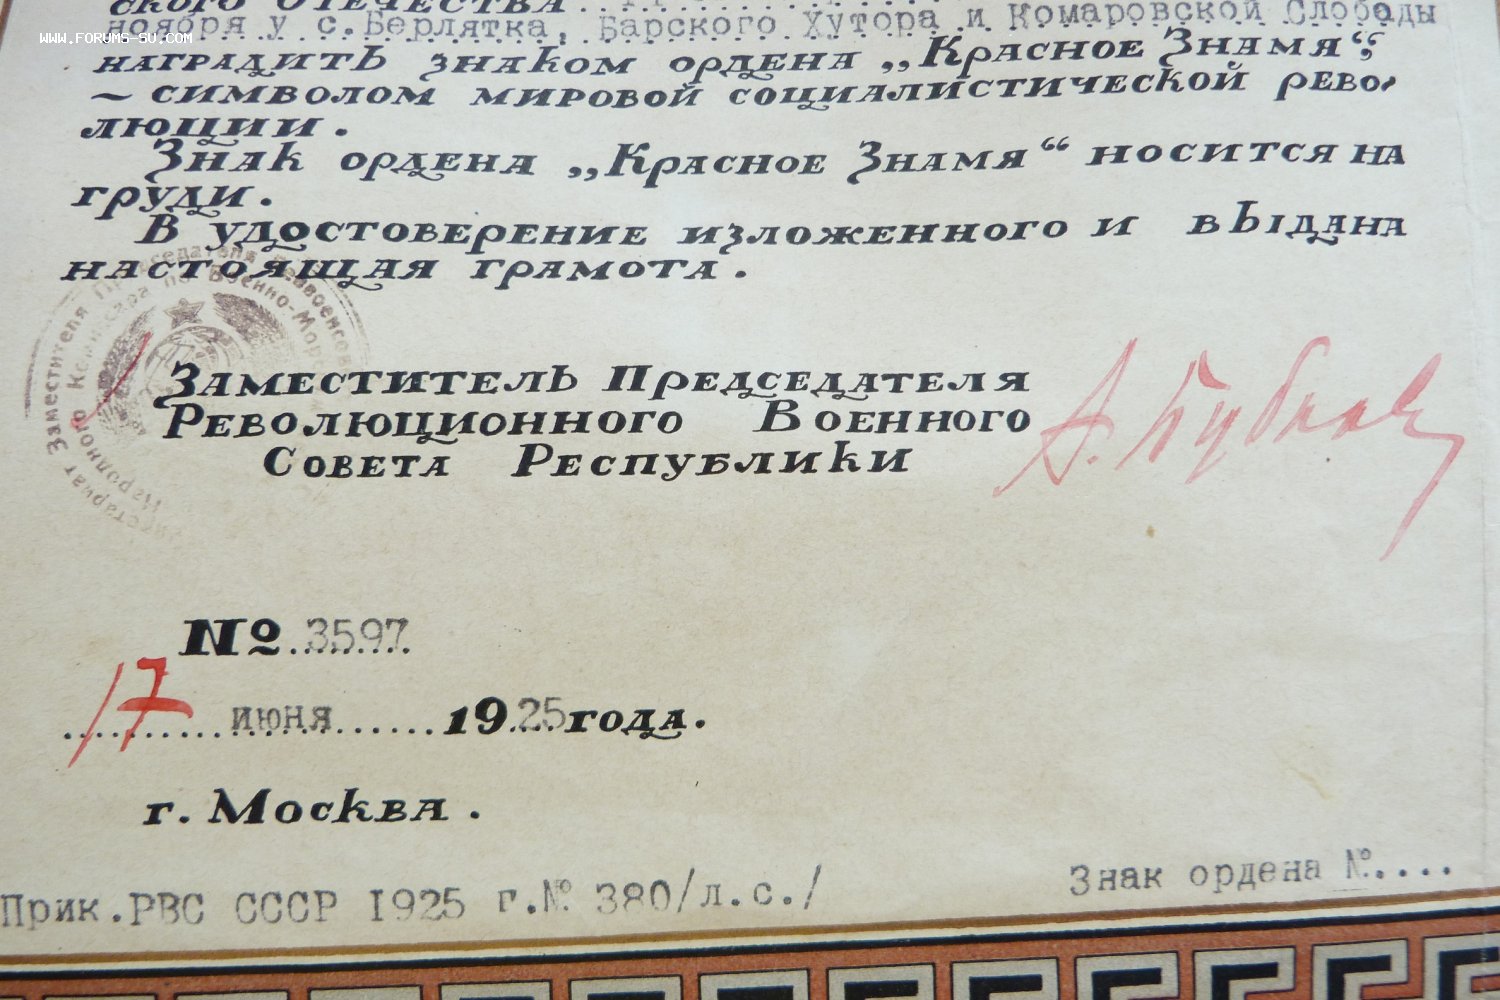 ского Отечества
WWW.FORUMS-SU.COM
ноября у с.Берлятка, Барского Хутора и Комаровской Слободы
наградить знаком ордена „Красное Знамя“,
~ символом мировой социалистической рево-
люции.
Знак ордена „Красное Знамя“ носится на
груди.
В удостоверение изложенного и выдана
настоящая грамота.
Заместитель Председателя
Революционного Военного
Совета Республики
А. Бубнов
№ 3597
17 июня 1925 года.
г. Москва.
Прик.РВС СССР 1925 г.№ 380/л.с./
Знак ордена №....